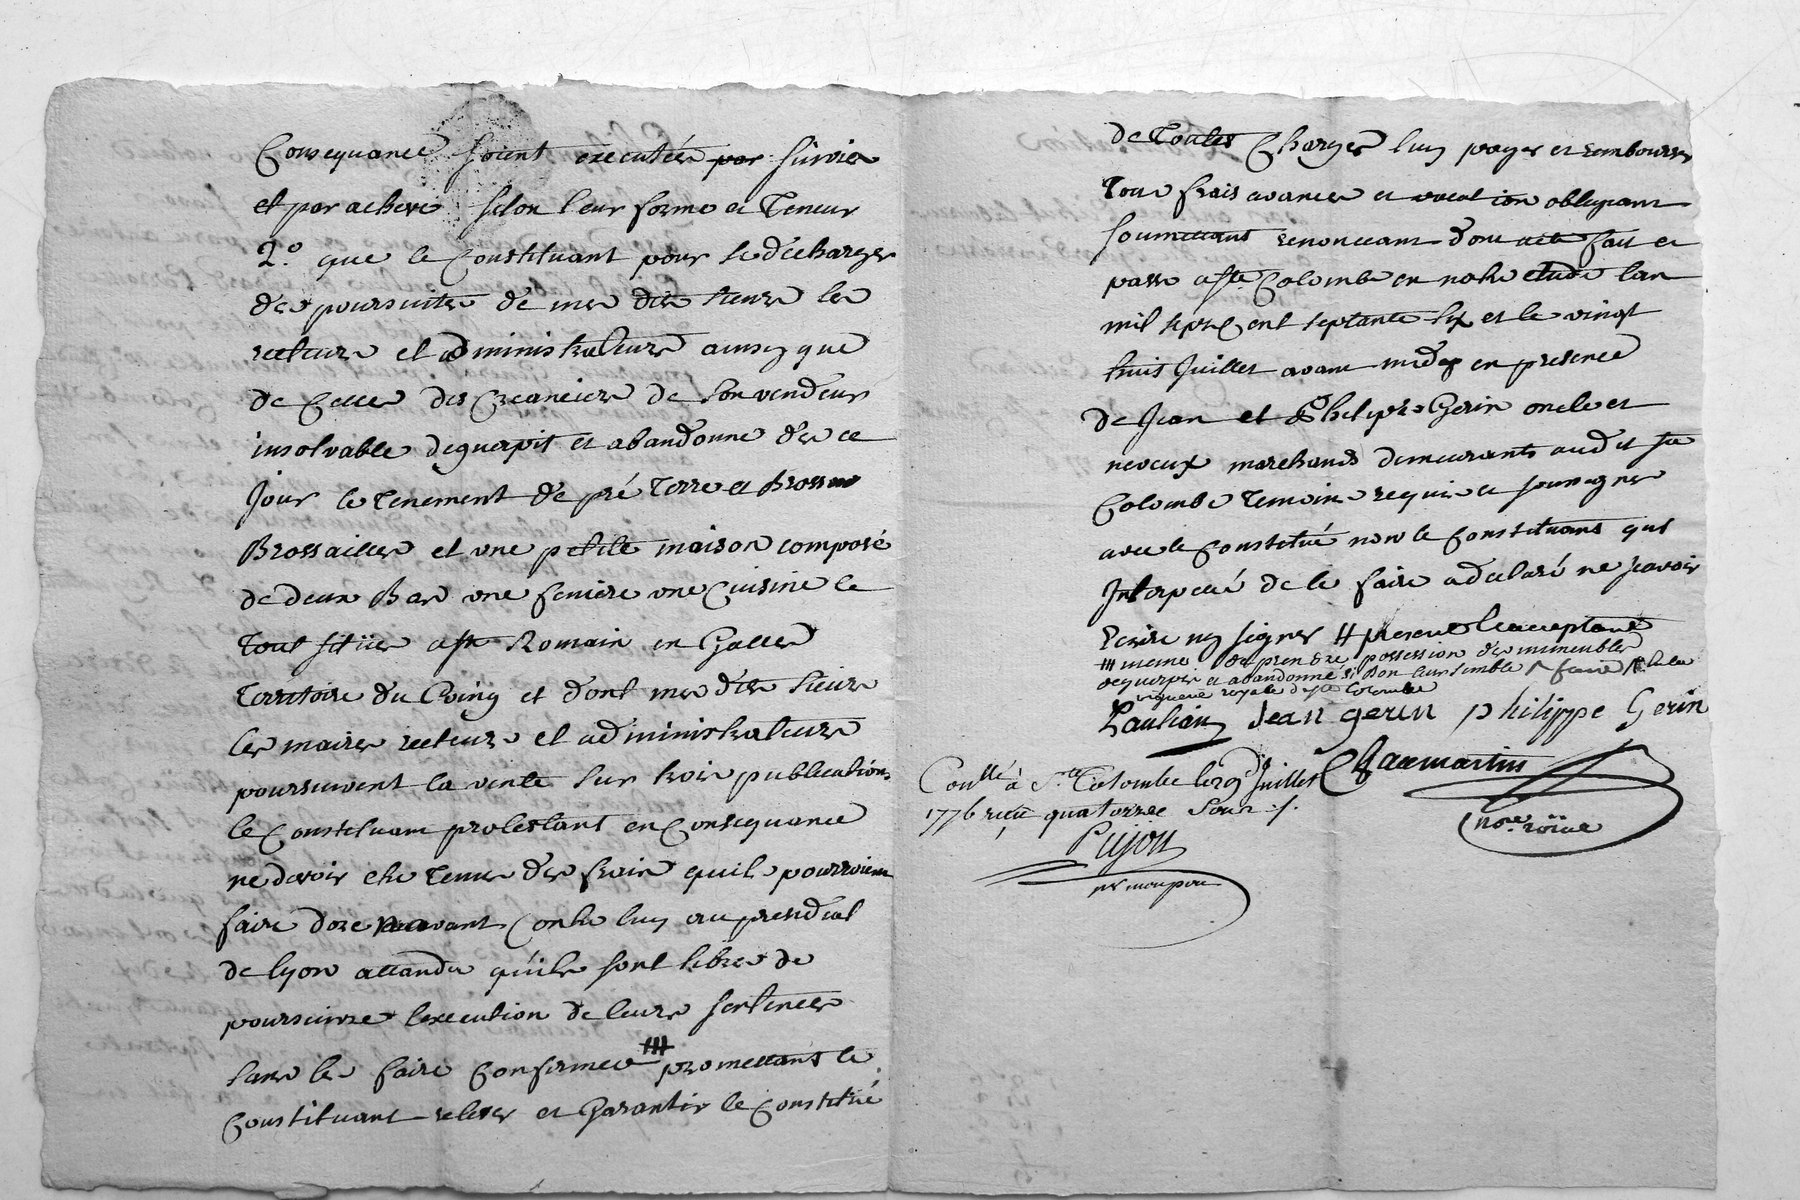 Consequance soient executées par suivie
et par acheve selon leur forme et Teneur
2.° que le Constituant pour se décharger
des poursuites de mes dits sieurs les
recteurs et administrateurs ainsy que
de Celles des Creanciers de son vendeur
insolvable deguerpit et abandonne des ce
Jour le Tenement de pré Terre et
Brossailles et une petite maison composé
de deux Bas une feniere une Cuisine le
Tout sitüés a St Romain en Galles
Territoire du et dont mes dits sieurs
les maires recteurs et administrateurs
poursuivent la vente sur trois publications
le Constituant protestant en Consequance
ne devoir etre Tenu des frais quils pourroient
faire dore navant Contre luy au presidial
de lyon attandu qu'ils sont libres de
poursuivre l'execution de leurs sentences
sans les faire Confirmer ⧻ promettant le
Constituant relever et Garantir le Constitué
de Toutes Charges luy payer et rembourser
Tous frais avances et vacation obligeant
soumettant renonceant dont acte fait et
passé a Ste Colombe en notre etude l'an
mil sept Cent septante six et le vingt
huit Juillet avant midy en presence
de Jean et Philippe Gerin oncle et
neveux marchands demeurants audit Ste
Colombe Temoins requis et soussignés
avec le Constitué non le Constituant qui
Interpellé de le faire a declaré ne scavoir
Ecrire ny signer # present et acceptant
⧻ meme de prendre possession des immeubles
deguerpis et abandonné si bon leur semble
royale de Ste Colombe
Jean gerin philippe Gerin
Chaumartin
nore roïal
Conllé à Ste Colombe le 29 Juillet
1776 reçu quatorze sous
Pujon